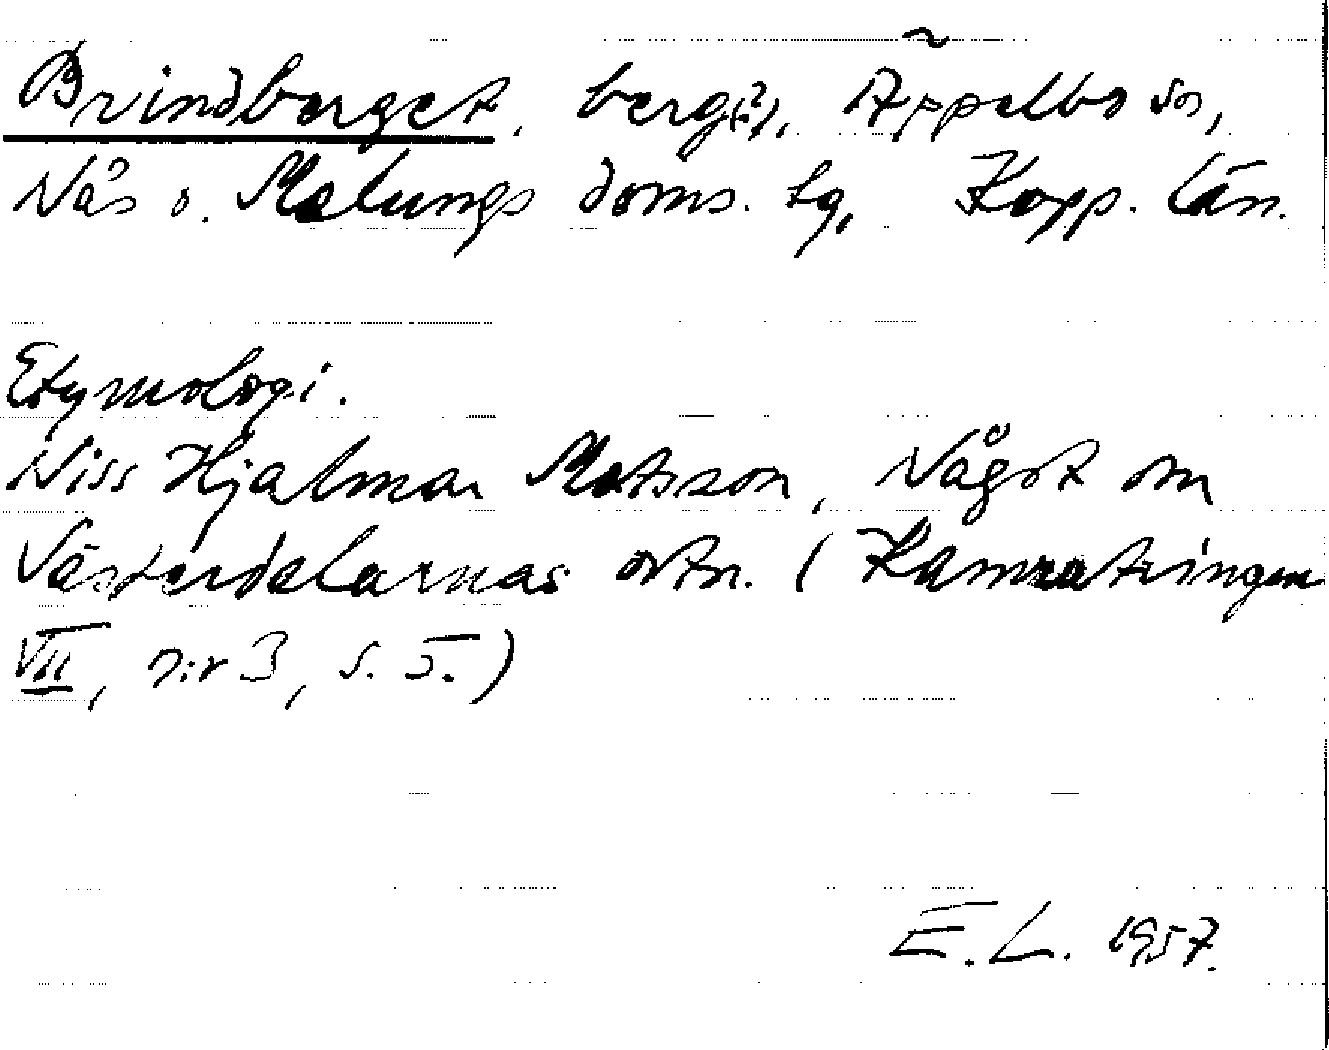 Brindberget, berg(?), Äppelbo sn,
Nås o. Malungs doms. tg, Kopp. län.
Etymologi.
Niss Hjalmar Matsson, Något om
Västerdalarnas ortn. (Kamratringen
VII, n:r 3, s. 5.)
E.L. 1957.